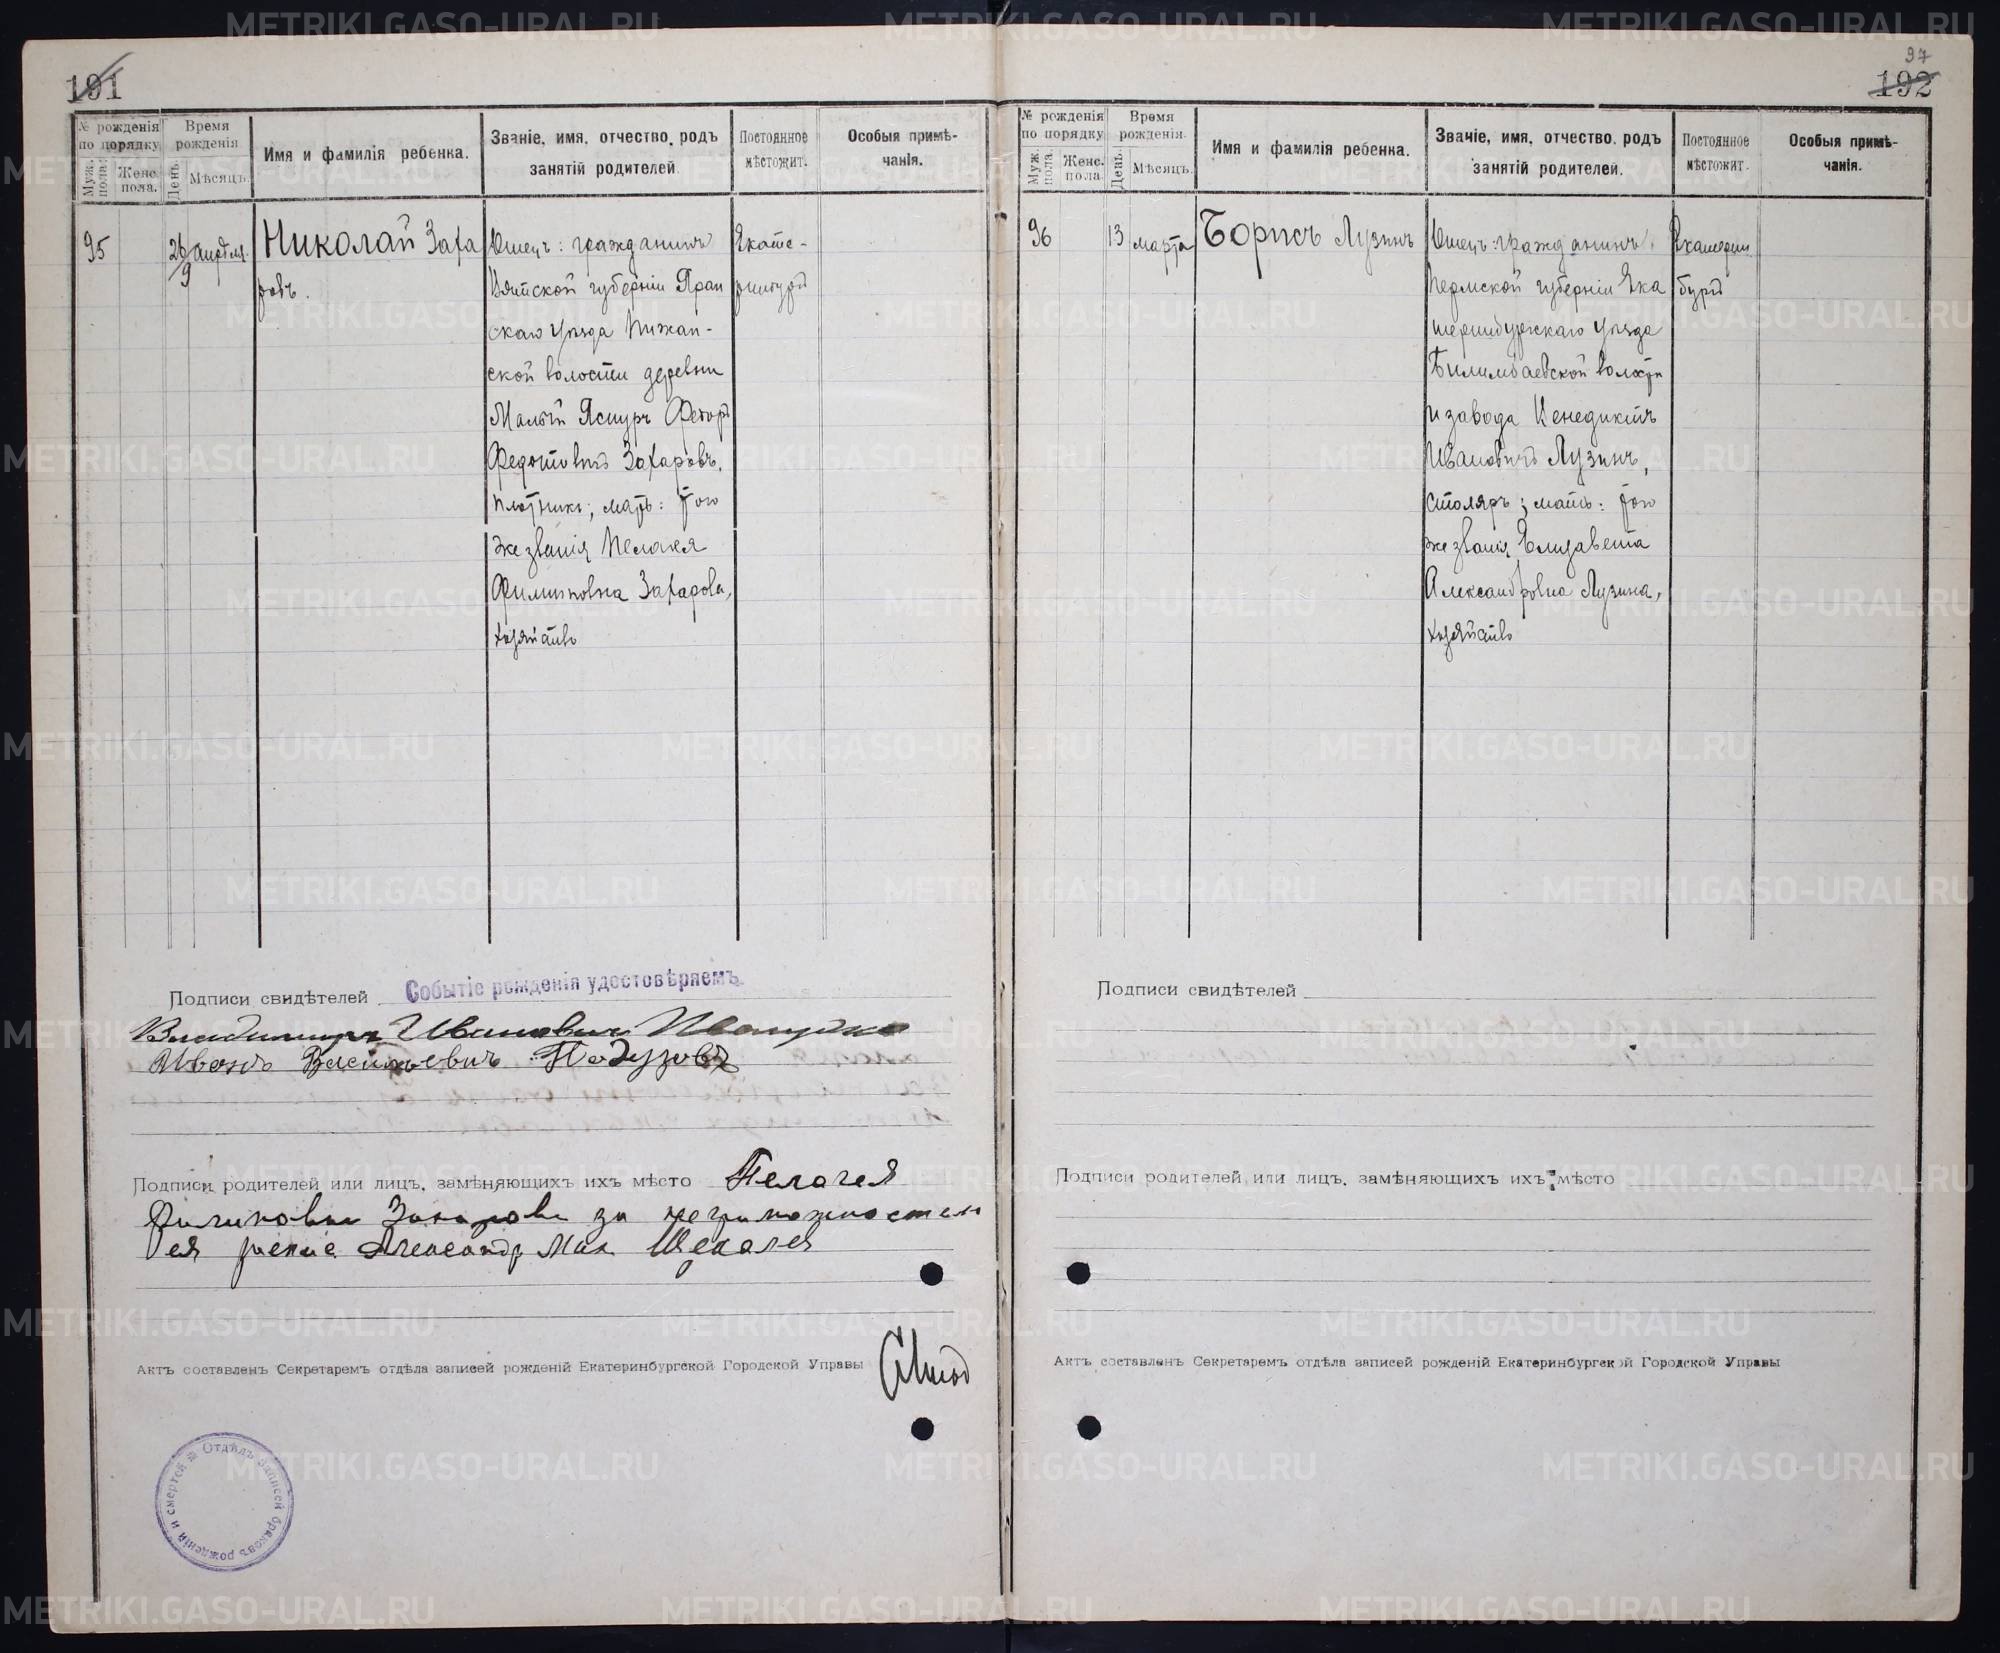 191
№ рожденія по порядку
Муж. пола.
Женс. пола.
Время рожденія
День.
Мѣсяцъ.
Имя и фамилія ребенка.
Званіе, имя, отчество, родъ
занятій родителей.
Постоянное
мѣстожит.
Особыя примѣ-
чанія.
95
26/9 апрѣля.
Николай Заха
ровъ.
Отецъ: гражданинъ
Вятской губерніи Яран
скаго уѣзда Пижан-
ской волости деревни
Малый Ясnуръ Федоръ
Федотовичъ Захаровъ,
плотникъ; мать: того
же званія Пелагея
Филиповна Захарова,
хозяйство
Екате-
ринбургъ
Подписи свидѣтелей
Событіе рожденія удостовѣряемъ
Владимиръ Ивановичъ
Иванъ Васильевичъ
Подписи родителей или лицъ, замѣняющихъ ихъ мѣсто Пелагея
Филиповна Захарова за неграмотностью
ея
Актъ составленъ Секретаремъ отдѣла записей рожденій Екатеринбургской Городской Управы
Отдѣлъ записей браковъ рожденій и смертей
97
192
№ рожденія по порядку
Муж. пола.
Женс. пола.
Время рожденія.
День.
Мѣсяцъ.
Имя и фамилія ребенка.
Званіе, имя, отчество, родъ
занятій родителей.
Постоянное
мѣстожит.
Особыя примѣ-
чанія.
96
13
марта
Борисъ Лузинъ
Отецъ: гражданинъ
Пермской губерніи Ека
теринбургскаго уѣзда
Билимбаевской волости
и завода Венедиктъ
Ивановичъ Лузинъ,
столяръ; мать: того
же званія Елизавета
Александровна Лузина,
хозяйство
Екатерин
бургъ
Подписи свидѣтелей
Подписи родителей или лицъ, замѣняющихъ ихъ мѣсто
Актъ составленъ Секретаремъ отдѣла записей рожденій Екатеринбургской Городской Управы
METRIKI.GASO-URAL.RU